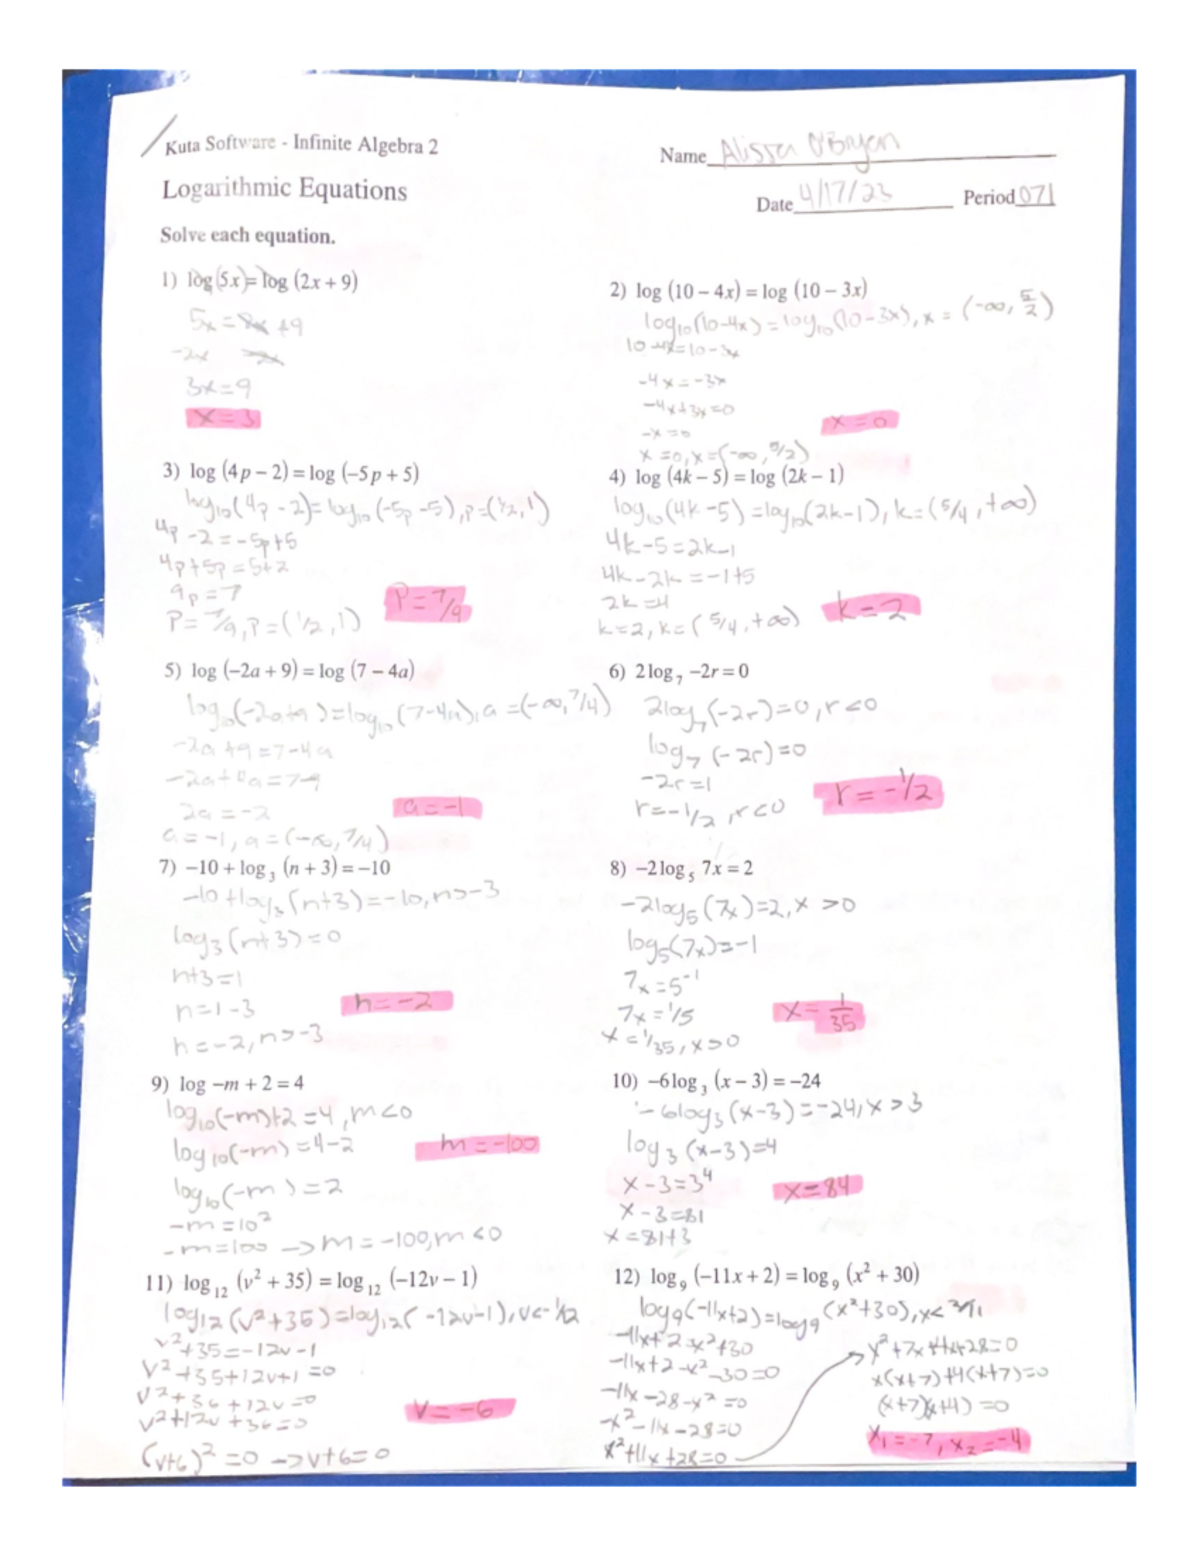 Kuta Software - Infinite Algebra 2
Name Alissa O'Bryen
Logarithmic Equations
Date 4/17/23 Period 071
Solve each equation.
1) log(5x) = log (2x + 9)
5x = 2x +9
-2x -2x
3x=9
x=3
2) log (10 – 4x) = log (10 – 3x)
log₁₀(10-4x) = log₁₀(10-3x), x = (-∞, 5/2)
10-4x=10-3x
-4x=-3x
-4x+3x=0
-x=0
x=0, x=(-∞, 5/2)
x=0
3) log (4p – 2) = log (–5p + 5)
log₁₀(4p-2)=log₁₀(-5p-5), p=(1/2, 1)
4p-2=-5p+5
4p+5p=5+2
9p=7
P=7/9, P=(1/2, 1)
P=7/9
4) log (4k – 5) = log (2k – 1)
log₁₀(4k-5)=log₁₀(2k-1), k=(5/4, +∞)
4k-5=2k-1
4k-2k=-1+5
2k=4
k=2, k=(5/4, +∞)
k=2
5) log (–2a + 9) = log (7 – 4a)
log₁₀(-2a+9)=log₁₀(7-4a), a=(-∞, 7/4)
-2a+9=7-4a
-2a+4a=7-9
2a=-2
a=-1, a=(-∞, 7/4)
a=-1
6) 2 log₇ –2r = 0
2log₇(-2r)=0, r<0
log₇(-2r)=0
-2r=1
r=-1/2, r<0
r=-1/2
7) –10 + log₃ (n + 3) = –10
-10+log₃(n+3)=-10, n>-3
log₃(n+3)=0
n+3=1
n=1-3
n=-2, n>-3
n=-2
8) –2 log₅ 7x = 2
-2log₅(7x)=2, x>0
log₅(7x)=-1
7x=5⁻¹
7x=1/5
x=1/35, x>0
x=1/35
9) log –m + 2 = 4
log₁₀(-m)+2=4, m<0
log₁₀(-m)=4-2
log₁₀(-m)=2
-m=10²
-m=100 → m=-100, m<0
m=-100
10) –6 log₃ (x – 3) = –24
-6log₃(x-3)=-24, x>3
log₃(x-3)=4
x-3=3⁴
x-3=81
x=81+3
x=84
11) log₁₂ (v² + 35) = log₁₂ (–12v – 1)
log₁₂(v²+35)=log₁₂(-12v-1), v<-1/12
v²+35=-12v-1
v²+35+12v+1=0
v²+36+12v=0
v²+12v+36=0
(v+6)²=0 → v+6=0
v=-6
12) log₉ (–11x + 2) = log₉ (x² + 30)
log₉(-11x+2)=log₉(x²+30), x<2/11
-11x+2=x²+30
-11x+2-x²-30=0
-11x-28-x²=0
-x²-11x-28=0
x²+11x+28=0
x²+7x+4x+28=0
x(x+7)+4(x+7)=0
(x+7)(x+4)=0
x₁=-7, x₂=-4